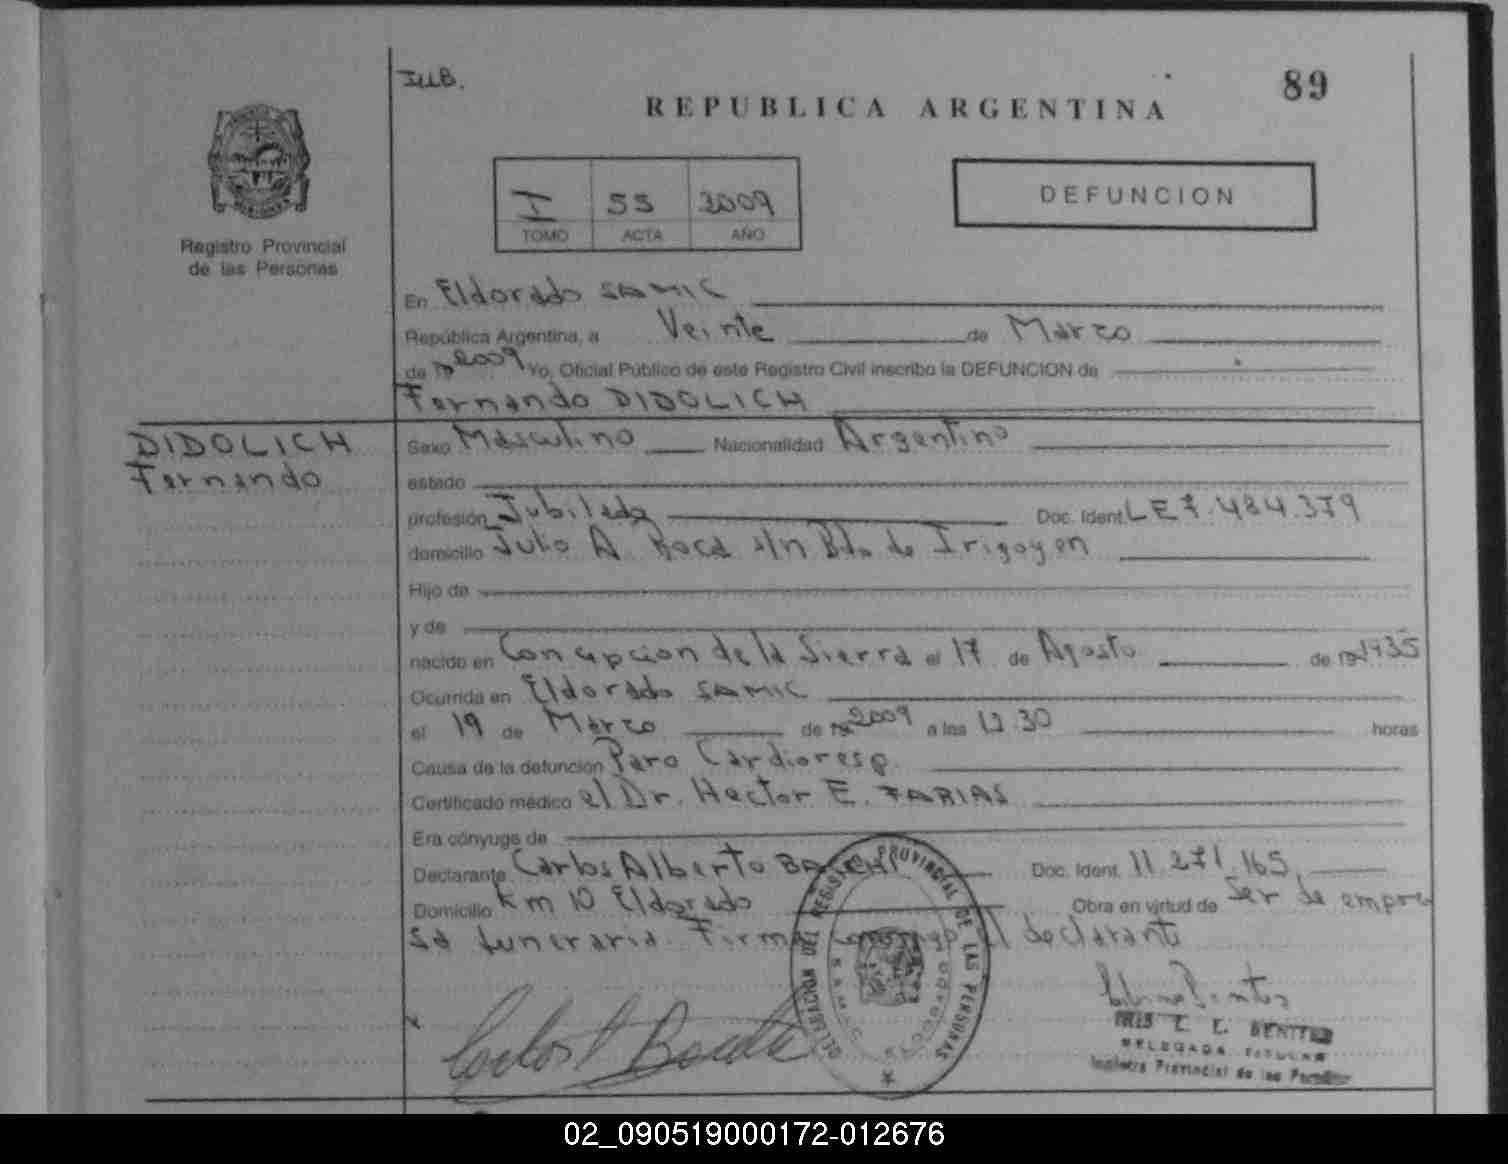 IUB.
89
REPUBLICA ARGENTINA
I 55 2009
TOMO ACTA AÑO
DEFUNCION
Registro Provincial
de las Personas
En Eldorado SAMIC
República Argentina, a Veinte de Marzo
de 19 2009 Yo, Oficial Público de este Registro Civil inscribo la DEFUNCION de
Fernando DIDOLICH
DIDOLICH
Fernando
Sexo Masculino Nacionalidad Argentino
estado
profesión Jubilado Doc. Ident. LE 7.484.379
domicilio Julio A. Roca s/n Bdo de Irigoyen
Hijo de
y de
nacido en Concepcion de la Sierra el 17 de Agosto de 19 1935
Ocurrida en Eldorado SAMIC
el 19 de Marzo de 19 2009 a las 12.30 horas
Causa de la defunción Paro Cardioresp.
Certificado médico el Dr. Hector E. FARIAS
Era cónyuge de
Declarante Carlos Alberto Doc. Ident. 11.271.165
Domicilio Km 10 Eldorado Obra en virtud de Ser de empre
sa funeraria. Firma el declarante
DELEGACION DEL REGISTRO PROVINCIAL DE LAS PERSONAS
IRIS E. BENITEZ
DELEGADA TITULAR
Registro Provincial de las Personas
02_090519000172-012676